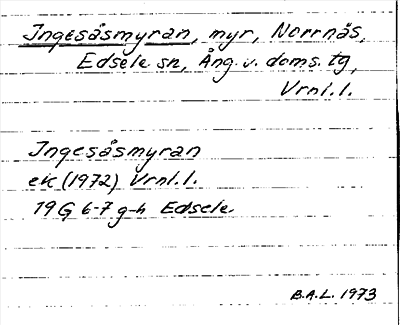 Ingesåsmyran, myr, Norrnäs,
Edsele sn, Ång. v. doms. tg,
Vrnl. l.
Ingesåsmyran
ek (1972) Vrnl. l.
19 G 6-7 g-h Edsele.
B.A.L. 1973